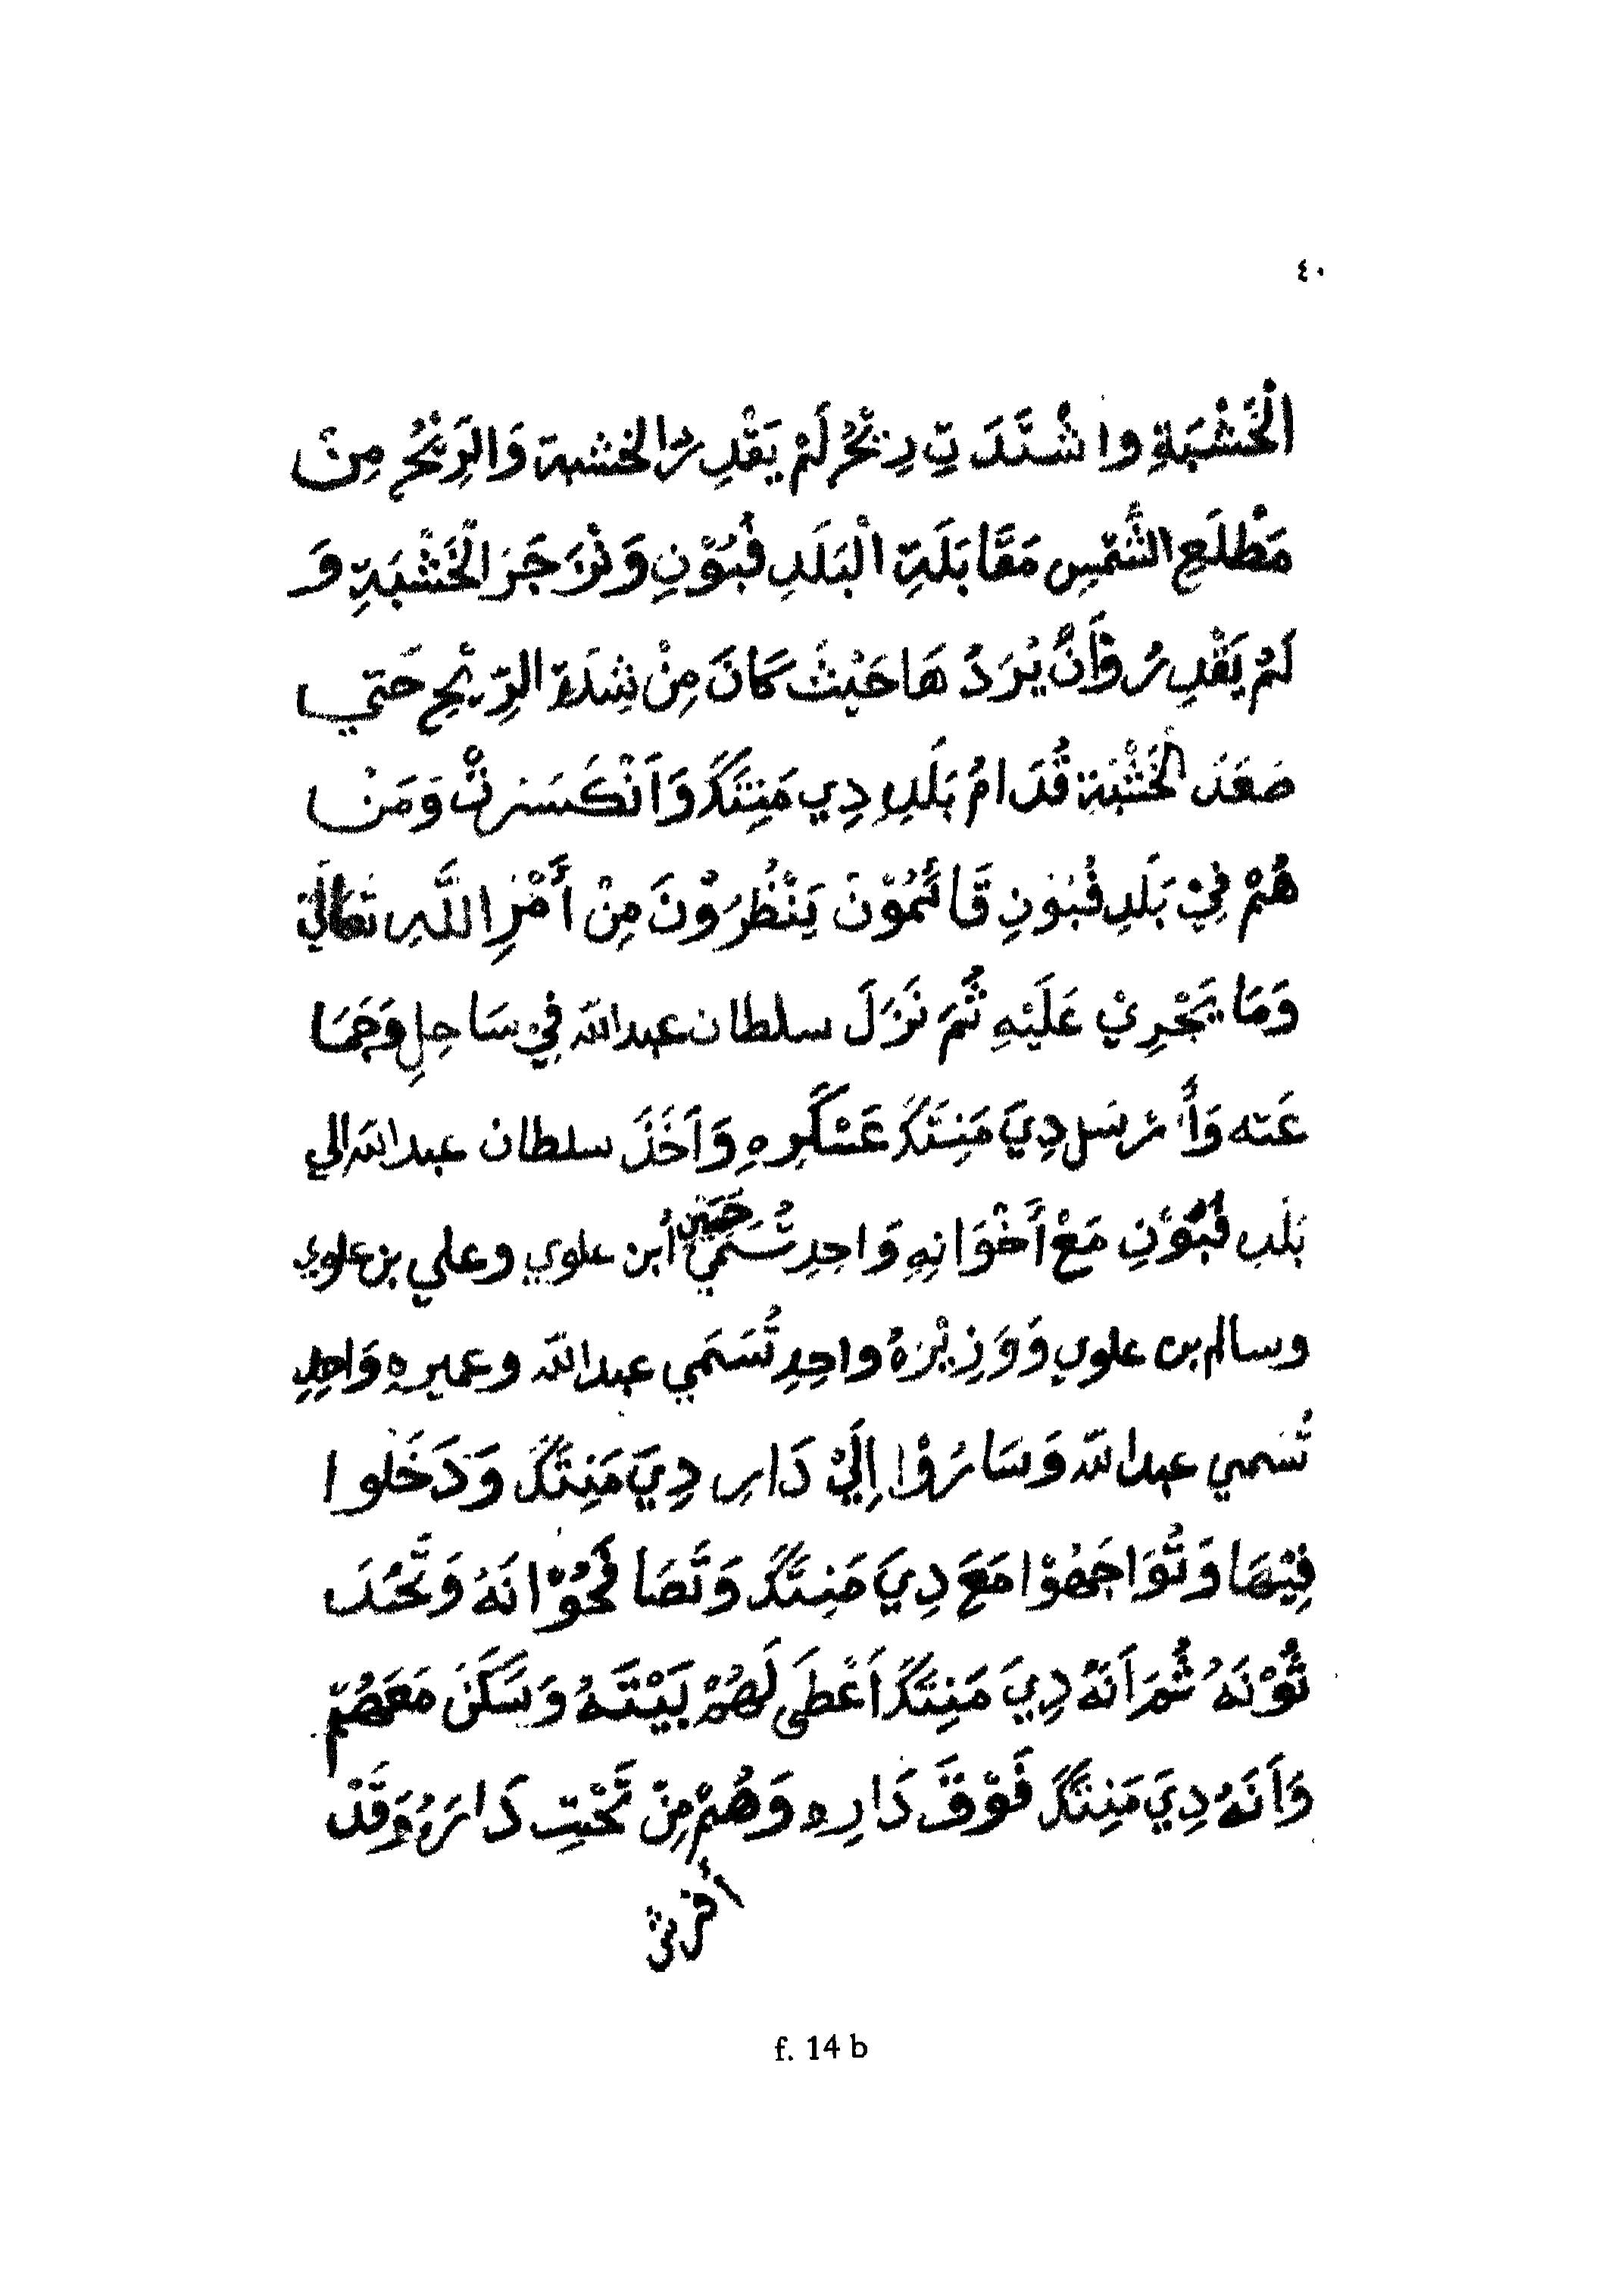 ٤٠
الْخَشْبَةِ واشْتَدَتِ رِيْحُ لَمْ يَقْدِرُ الخشبة وَالرِيْحُ مِنْ
مَطْلَعِ الشَّمْسِ مَقَابَلَةِ الْبَلَدِ فُبُوْنِ وَنْزَجَرَ الْخَشْبَةِ وَ
لَمْ يَقْدِرُوْأَنْ يُرَدُهَا حَيْثَ كَانَ مِنْ شِدَةِ الرِّيْحِ حَتي
صَعَدَ الْخَشْبَة قُدَامُ بَلَدِ دِي مَنِتَكَ وَاَنْكَسَرتْ وَمَنْ
هُمْ فِيْ بَلَدِ فُبُوْنِ قَائمُوْنَ يَنْظُرَوْنَ مِنْ أَمْرِ اللَّهِ تَعَالَي
وَمَا يَجْرِيْ عَلَيْهِ ثُمَ نَزَلَ سلطان عبدالله فِي سَاحِلِ وَجَمَا
عَته وَأَرْسَل دِيَ مَنِتَكَ عَسْكَرِهِ وَاَخَذَ سلطان عبدالله الي
بَلَدِ فُبُوْنِ مَعْ أَخْوَانِهِ وَاحِدِ تُسَمَي حسين أبن علوي وعلي بن علوي
وسالم بن علوي وَوَزِيْرَهُ واحِدِ تُسَمَي عبدالله وعميرهِ وَاحِدِ
تُسَمي عبدالله وَسَارُوْا إِلَيْ دَارِ دِيَ مَنِتَكَ وَدَخَلوا
فِيْهَا وَتُوَاجَهُوْا مَعَ دِيَ مَنِتَكَ وَتَصَافَحُوْانَهُ وَتَحُدَ
ثُوْنَهُ ثُمَ اَنَهُ دِيَ مَنِتَكَ اَعْطَى لَهُمْ بَيْتَهُ وَسَكَنَ مَعَهُمْ
وَاَنَهُ دِيَ مَنِتَكَ فَوْقَ دَارِهِ وَهُمْ مِنْ تَحْتِ دَارَهُ وَقَدْ
f. 14 b